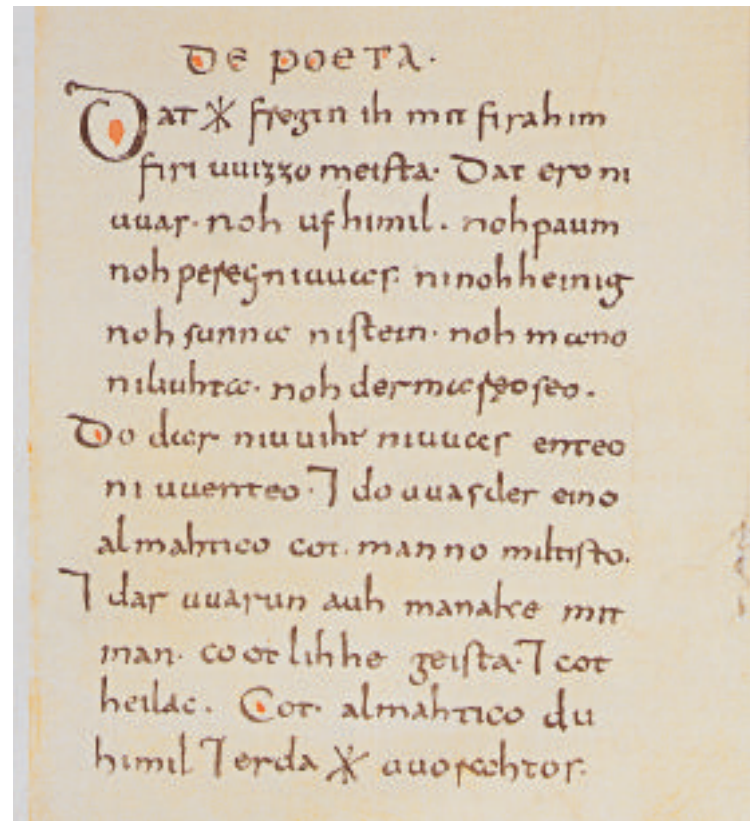 De poeta·
Dat ᚷ fregin ih mit firahim
firi uuizzo meista· Dat ero ni
uuas· noh ufhimil· noh paum
noh pereg niuuas· ninohheinig
noh sunna nistein· noh mano
niliuhta· noh dermareoseo·
Do dar niuuiht niuuas enteo
ni uuenteo· ⁊ do uuasder eino
almahtico cot· manno miltisto·
⁊ dar uuarun auh manake mit
man· cootlihhe geista· ⁊ cot
heilac· Cot· almahtico du
himil ⁊ erda ᚷ uuorahtos·